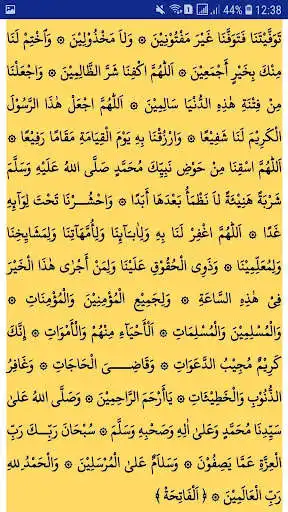 44% 12:38
تَوَفَّيْتَنَا فَتَوَفَّنَا غَيْرَ مَفْتُوْنِيْنَ ۞ وَلاَ مَخْذُوْلِيْنَ ۞ وَاخْتِمْ لَنَا
مِنْكَ بِخَيْرٍ أَجْمَعِيْنَ ۞ اَللّٰهُمَّ اكْفِنَا شَرَّ الظَّالِمِيْنَ ۞ وَاجْعَلْنَا
مِنْ فِتْنَةِ هٰذِهِ الدُّنْيَا سَالِمِيْنَ ۞ اَللّٰهُمَّ اجْعَلْ هٰذَا الرَّسُوْلَ
الْكَرِيْمَ لَنَا شَفِيْعًا ۞ وَارْزُقْنَا بِهِ يَوْمَ الْقِيَامَةِ مَقَامًا رَفِيْعًا ۞
اَللّٰهُمَّ اسْقِنَا مِنْ حَوْضِ نَبِيِّكَ مُحَمَّدٍ صَلَّى اللهُ عَلَيْهِ وَسَلَّمَ
شَرْبَةً هَنِيْئَةً لاَ نَظْمَأُ بَعْدَهَا أَبَدًا ۞ وَاحْشُـــرْنَا تَحْتَ لِوَآبِهِ
غَدًا ۞ اَللّٰهُمَّ اغْفِرْ لَنَا بِهِ وَلِاٰبَآئِنَا وَلِأُمَّهَاتِنَا وَلِمَشَايِخِنَا
وَلِمُعَلِّمِيْنَا ۞ وَذَوِى الْحُقُوْقِ عَلَيْنَا وَلِمَنْ أَجْرٰى هٰذَا الْخَيْرَ
فِىْ هٰذِهِ السَّاعَةِ ۞ وَلِجَمِيْعِ الْمُؤْمِنِيْنَ وَالْمُؤْمِنَاتِ ۞
وَالْمُسْلِمِيْنَ وَالْمُسْلِمَاتِ ۞ اَلْأَحْيَآءِ مِنْهُمْ وَالْأَمْوَاتِ ۞ إِنَّكَ
كَرِيْمٌ مُجِيْبُ الدَّعَوَاتِ ۞ وَقَاضِـــى الْحَاجَاتِ ۞ وَغَافِرُ
الذُّنُوْبِ وَالْخَطِيْئَاتِ ۞ يَاأَرْحَمَ الرَّاحِمِيْنَ ۞ وَصَلَّى اللهُ عَلىٰ
سَيِّدِنَا مُحَمَّدٍ وَعَلىٰ اٰلِهِ وَصَحْبِهِ وَسَلَّمَ ۞ سُبْحَانَ رَبِّـكَ رَبِّ
الْعِزَّةِ عَمَّا يَصِفُوْنَ ۞ وَسَلاَمٌ عَلىٰ الْمُرْسَلِيْنَ ۞ وَالْحَمْدُ لِلهِ
رَبِّ الْعَالَمِيْنَ ۞ ﴿ اَلْفَاتِحَةْ ﴾